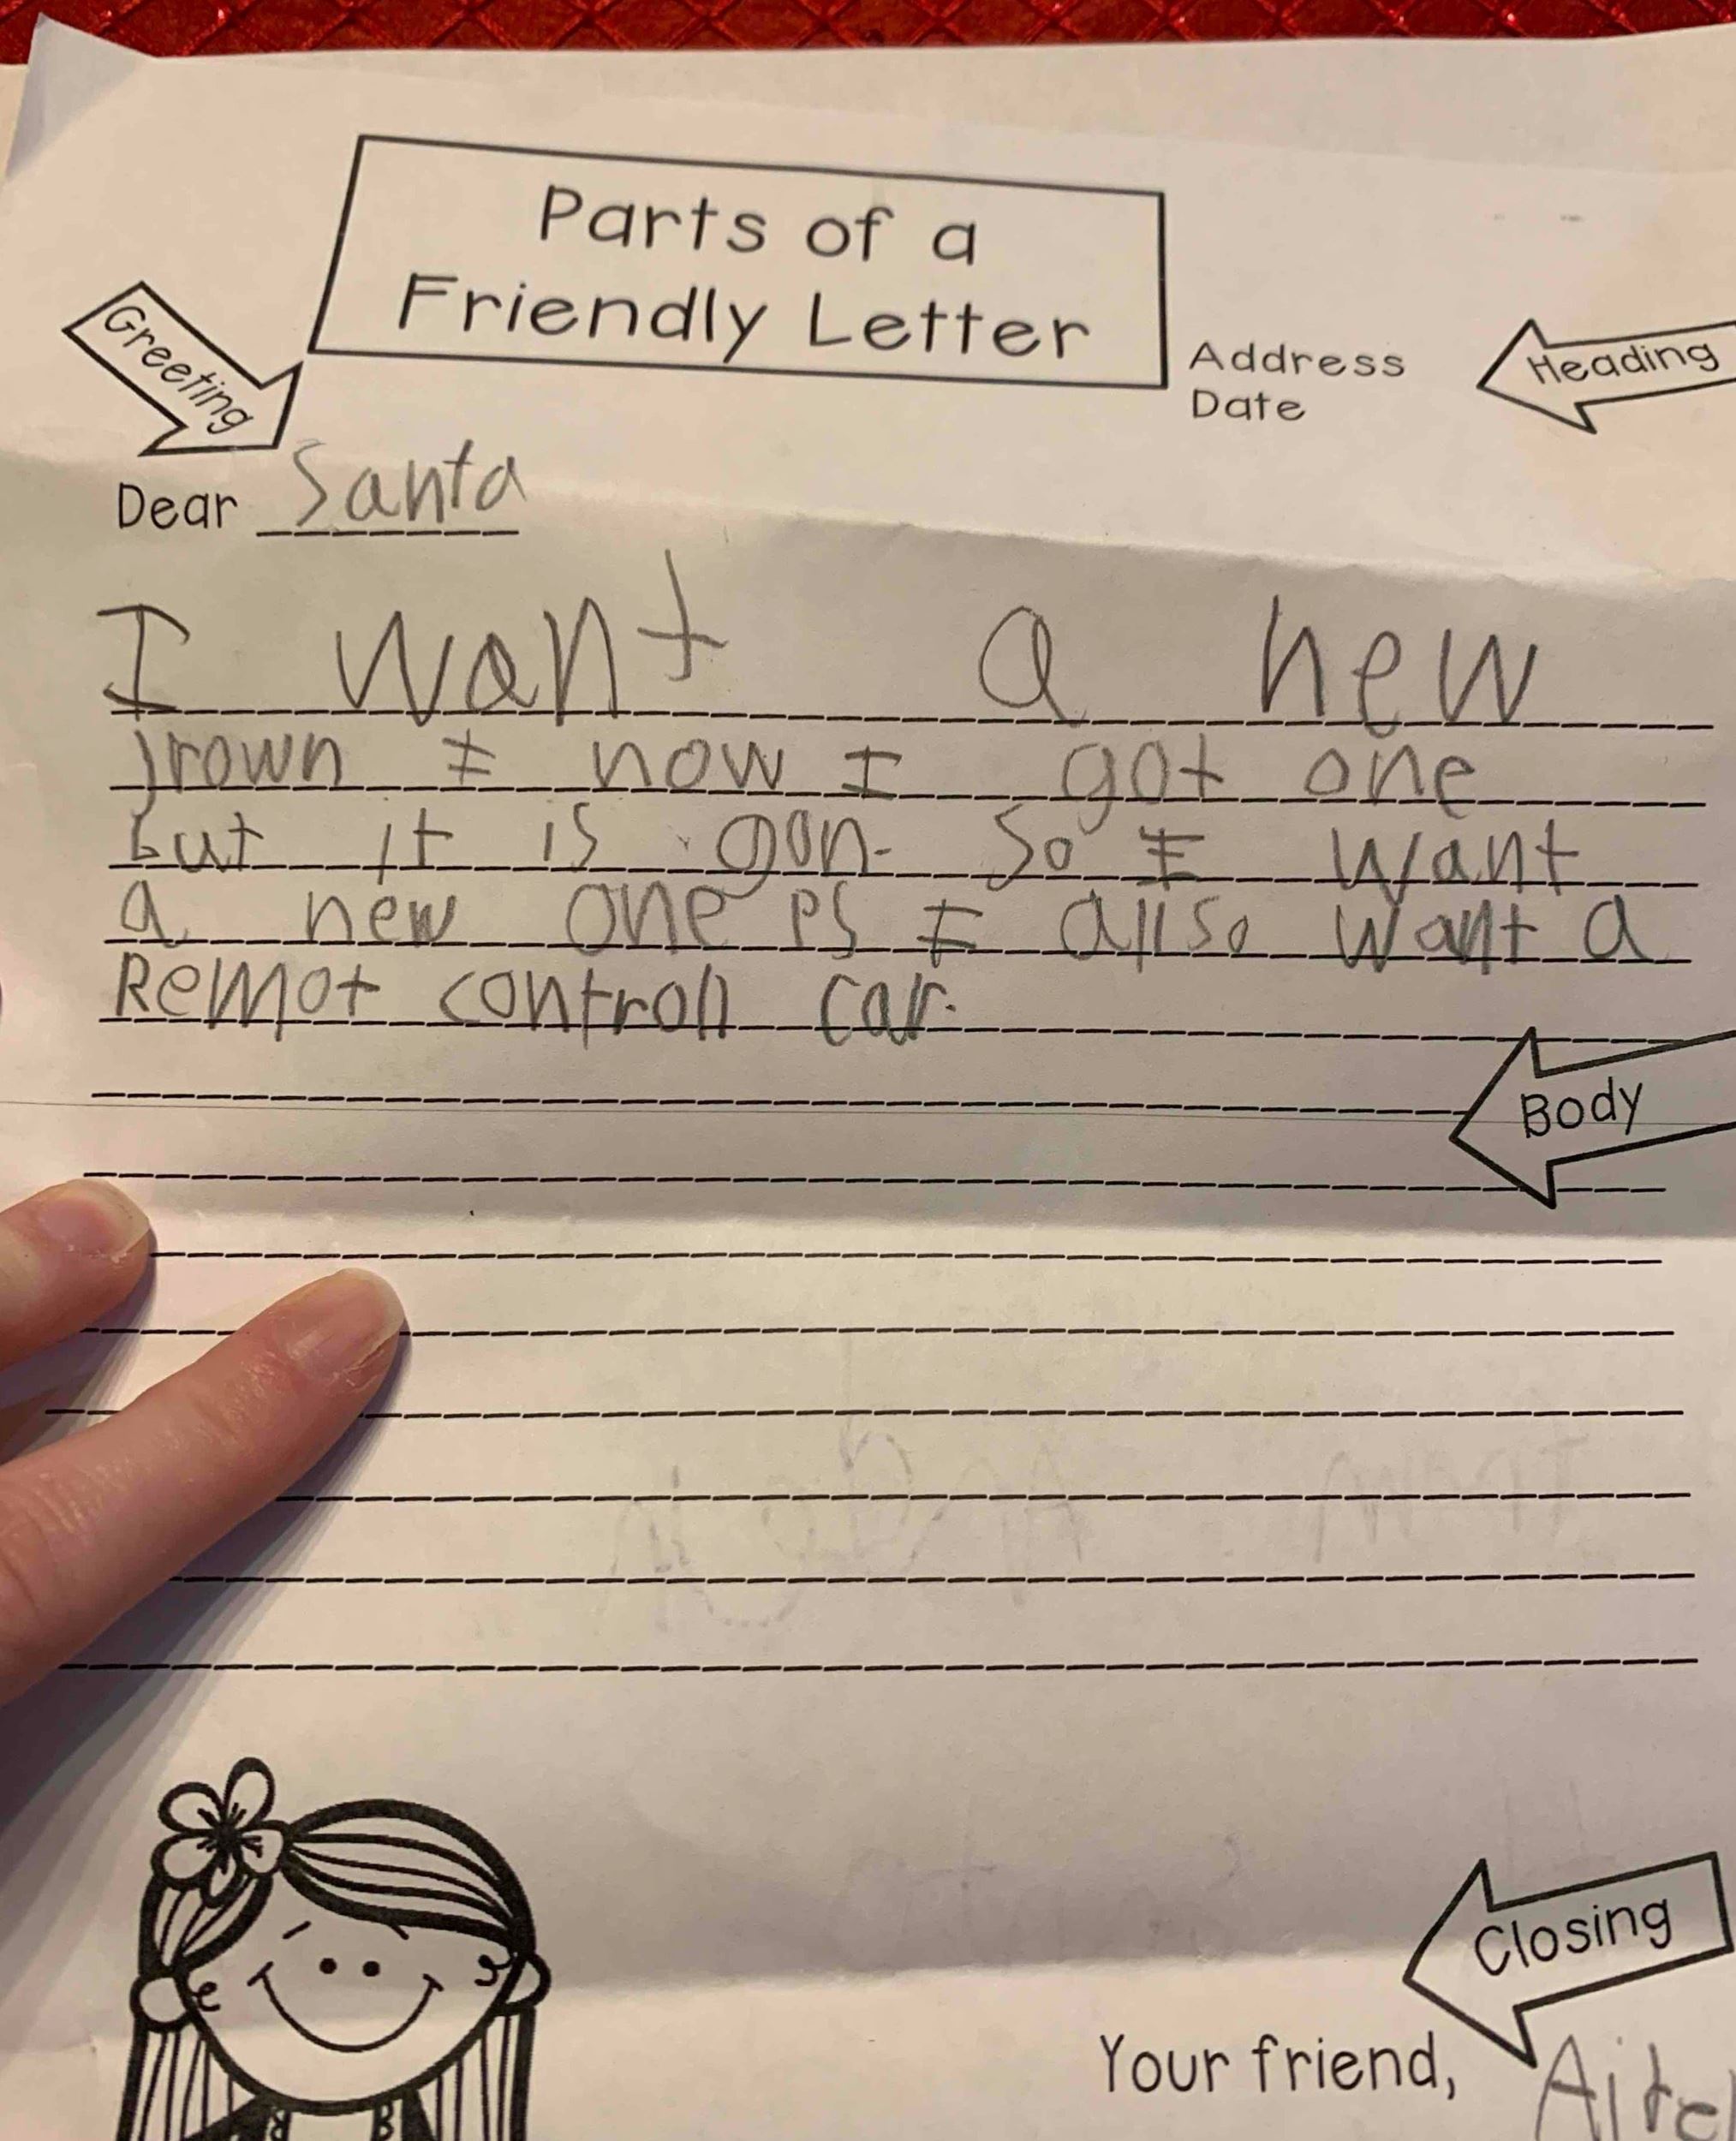 Parts of a
Friendly Letter
Greeting
Address
Date
Heading
Dear Santa
I want a new
jrown I now I got one
but it is gon. So I want
a new one PS I allso want a
Remot controll car.
Body
Closing
Your friend,